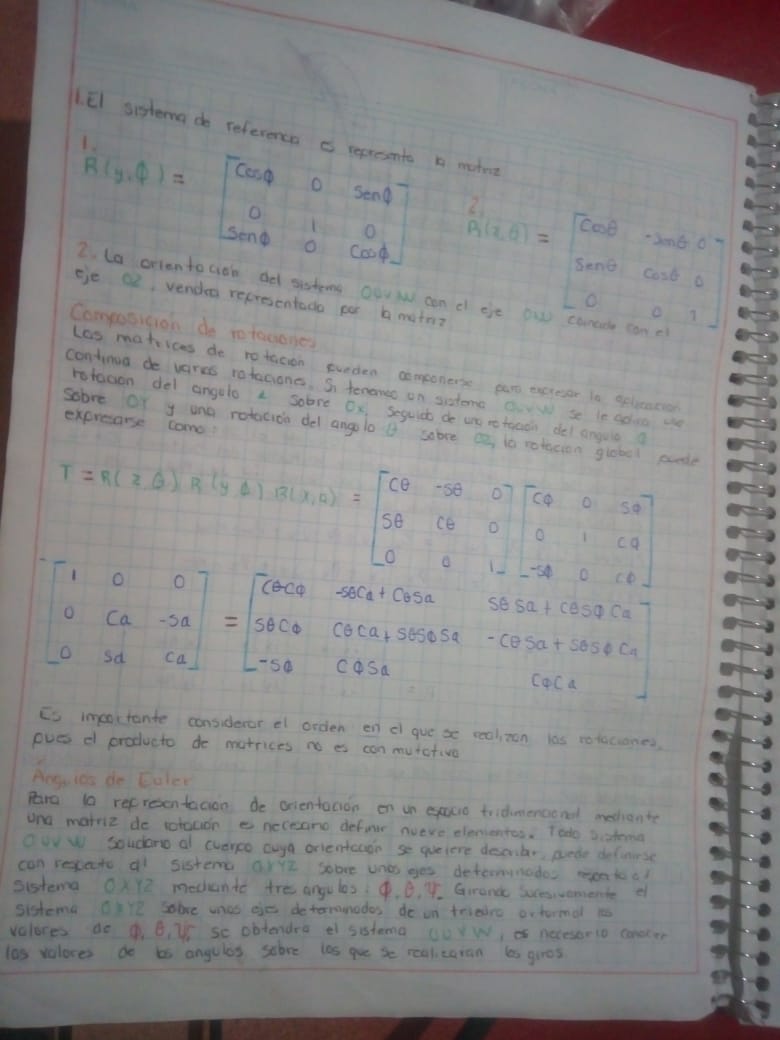 1. El sistema de referencia es representa la matriz
1.
R(y,ϕ) = [Cosϕ 0 Senϕ
0 1 0
Senϕ 0 Cosϕ]
2.
R(z,θ) = [Cosθ -senθ 0
Senθ cosθ 0
0 0 1]
2. La orientación del sistema OUVW con el eje OW coincide con el
eje OZ, vendra representado por la matriz
Composición de rotaciones
Las matrices de rotación pueden componerse para expresar la aplicación
continua de varias rotaciones. Si tenemos un sistema OUVW se le aplica una
rotacion del angulo sobre Ox, seguido de una rotación del angulo
sobre OY y una rotación del angulo θ sobre OZ, la rotacion global puede
expresarse como:
T = R(z,θ) R(y,ϕ) R(x,a) = [cθ -sθ 0
sθ cθ 0
0 0 1] [cϕ 0 sϕ
0 1 ca
-sϕ 0 cϕ]
[1 0 0
0 Ca -sa
0 sa ca] = [cθcϕ -sθCa + Cθsa sθsa + cθsϕCa
sθCϕ CθCa + sθsϕsa -Cθsa + sθsϕCa
-sϕ CϕSa CϕCa]
Es importante considerar el orden en el que se realizan las rotaciones,
pues el producto de matrices no es conmutativo
Angulos de Euler
Para la representación de orientación en un espacio tridimencional mediante
una matriz de rotación es necesario definir nueve elementos. Todo sistema
OUVW soudario al cuerpo cuya orientación se queiere describir, puede definirse
con respecto al sistema OXYZ sobre unos ejes determinados respecto al
sistema OXYZ mediante tres angulos: ϕ, θ, ψ. Girando sucesivamente el
sistema OXYZ sobre unos ejes determinados de un triedro ortormal los
valores de ϕ, θ, ψ, se obtendra el sistema OUVW, es necesario conocer
los valores de los angulos sobre los que se realizaran los giros.